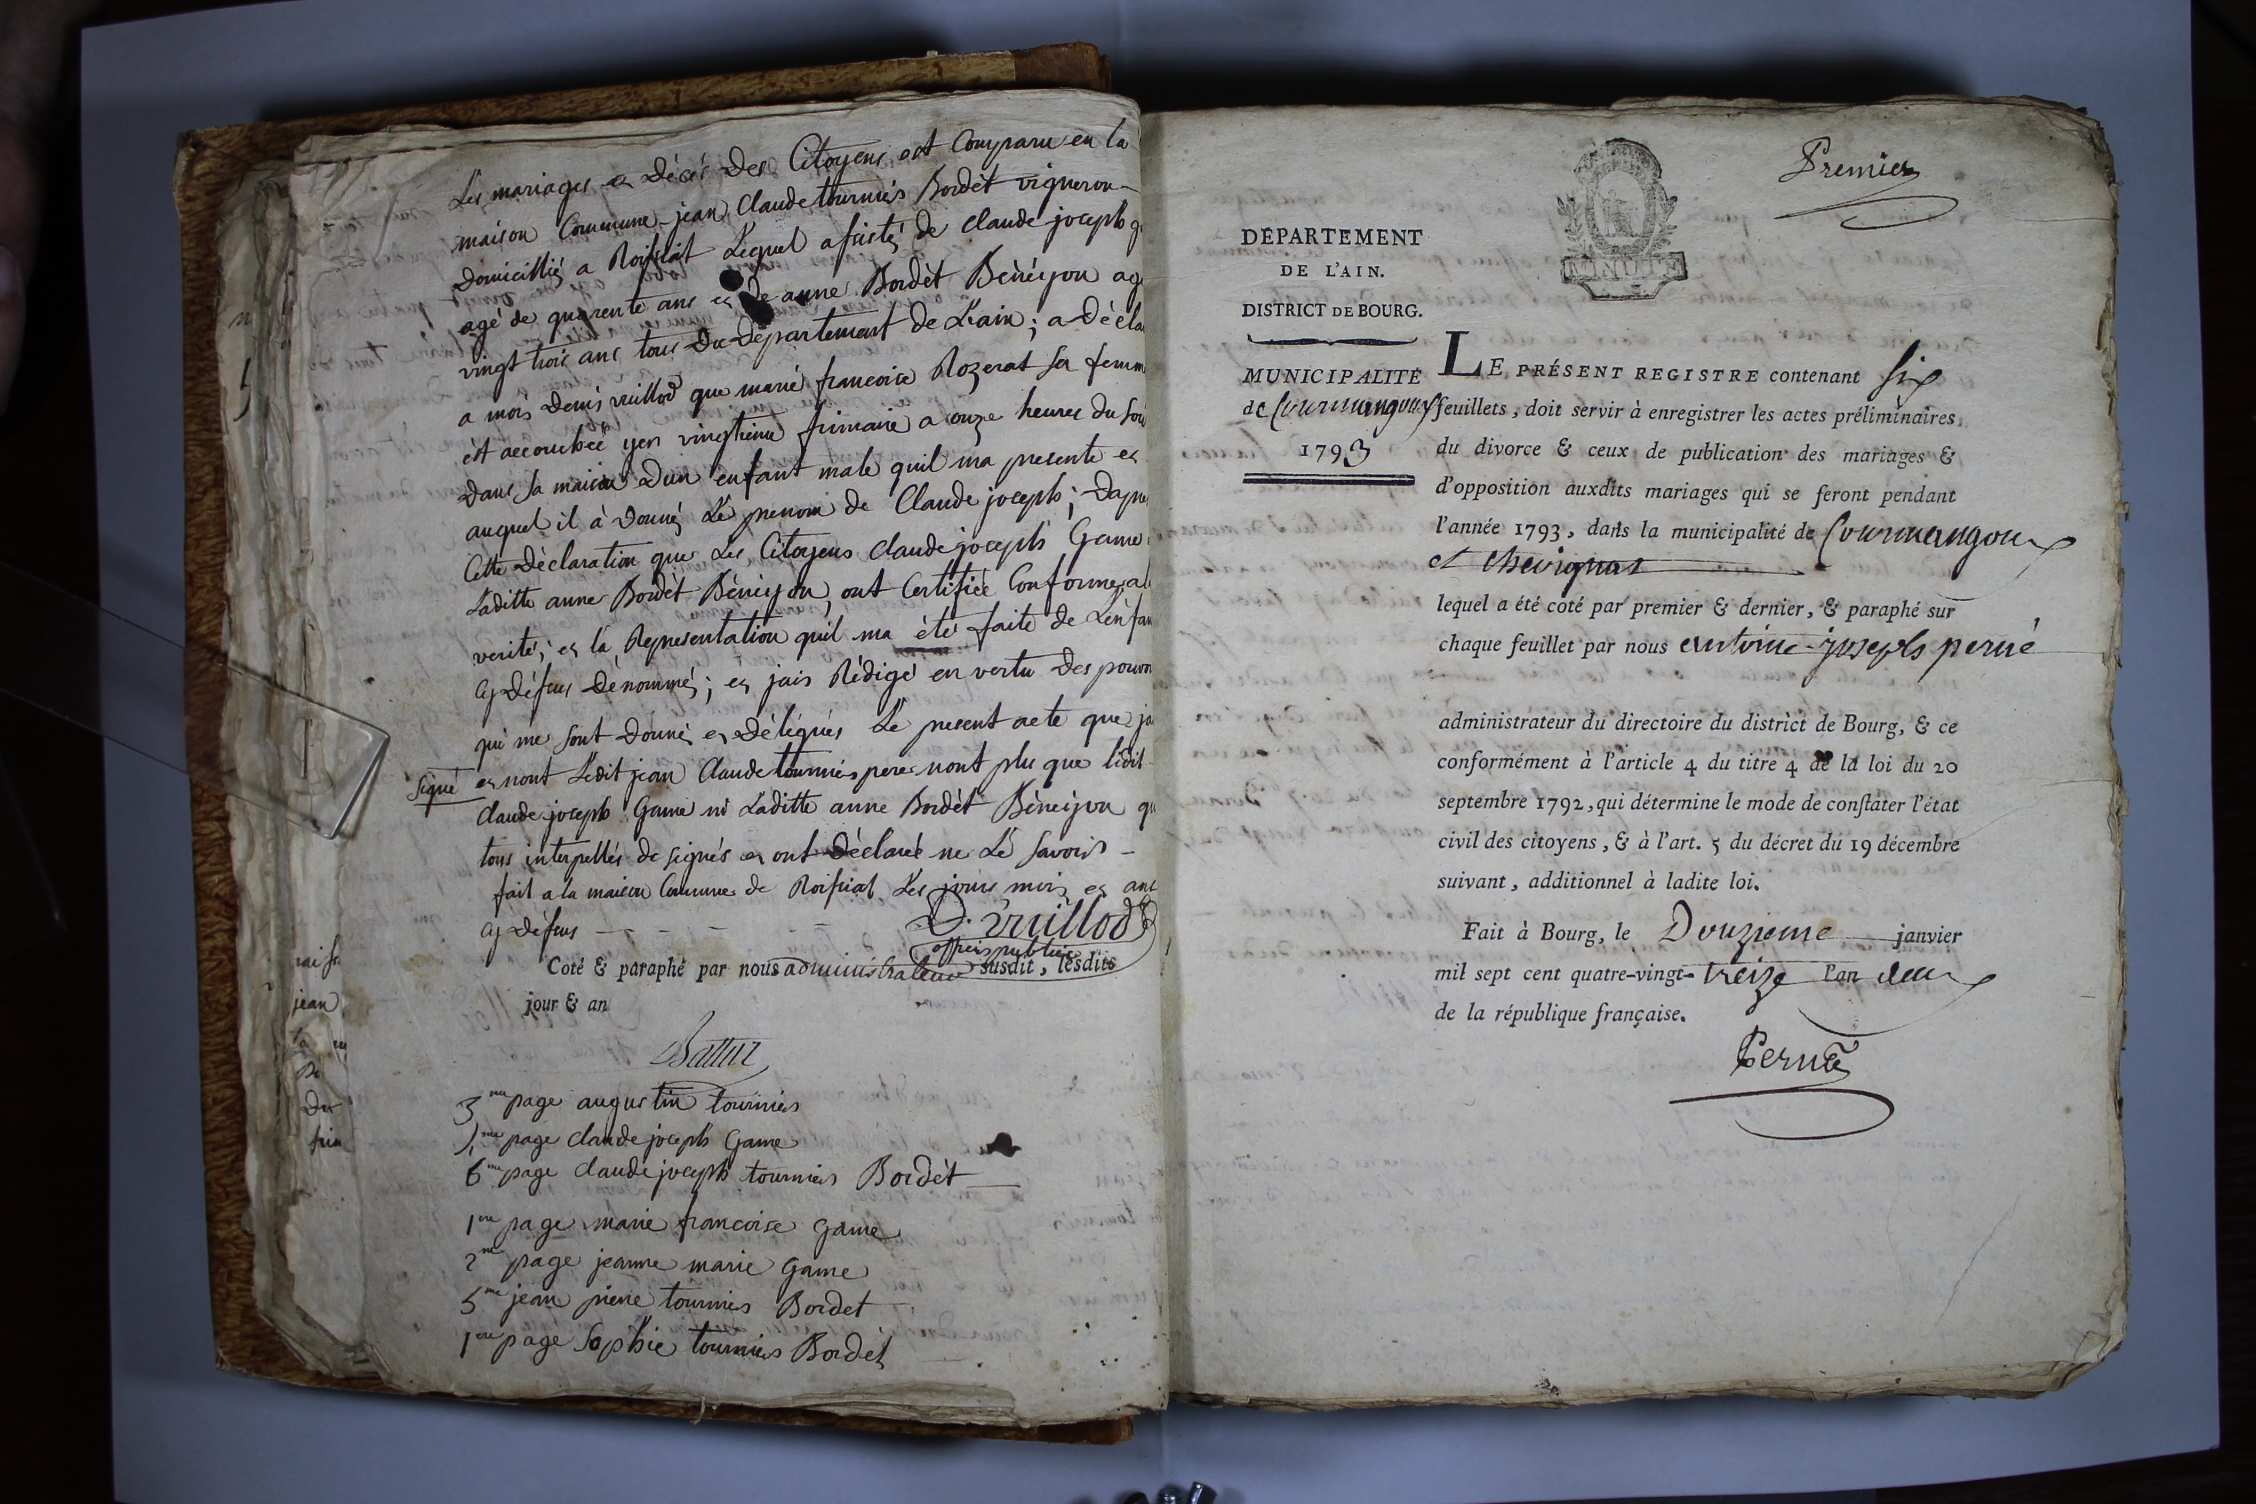 Les mariages et Décés Des Citoyens est Comparu en la
maison Commune jean Claude tourniés Bordèt vigneron
Domicillié a Roissiat Lequel assisté de claude joseph
agé de quarente ans et de anne Bordèt Bènèyon
vingt trois ans tous Du Département de L'ain ; a Décla
a mois Denis vuillod que marie francoise Rozerat sa femm
èst accouchée yer vingtieme frimaire a onze heures du soir
Dans sa maison D'un enfant male quil ma presente et
auquel il à Donné Le prenom de Claude joseph ; Dapre
Cette Déclaration que Les Citoyens claude joseph Game
Laditte anne Bordèt Bèneyon ont Certifiée Conforme a
verité ; et la Representation quil ma été faite de L'enfan
cy Dessus Dénommé ; et jais Rédigé en vertu Des pouvoi
qui me sont Donné et Délégués Le present acte que ja
Signé et nont Ledit jean Claude tourniés pere nont plu que ledit
claude joseph Game ni Laditte anne Bordèt Bèneyon
tous interpellés de signés et ont Déclaré ne Le savoir
fait a la maison Commune de Roissiat Les jours mois et ans
cy dessus
D. Vuillod
officier public
Coté & paraphé par nous administrateur susdit, lesdits
jour & an
3me page augustin tourniés
page claude joseph Game
6me page claude joseph tourniers Bordèt
1ere page marie francoise Game
2me page jeanne marie Game
5me jean piere tourniés Bordet
1ere page Sophie tourniés Bordèt
jean
Premier
MINUTE
DÉPARTEMENT
DE L'AIN.
DISTRICT DE BOURG.
MUNICIPALITÉ
de Courmangoux
1793
LE PRÉSENT REGISTRE contenant six
feuillets, doit servir à enregistrer les actes préliminaires
du divorce & ceux de publication des mariages &
d'opposition auxdits mariages qui se feront pendant
l'année 1793, dans la municipalité de Courmangoux
et Chevignat
lequel a été coté par premier & dernier, & paraphé sur
chaque feuillet par nous antoine-joseph perné
administrateur du directoire du district de Bourg, & ce
conformément à l'article 4 du titre 4 de la loi du 20
septembre 1792, qui détermine le mode de conſtater l'état
civil des citoyens, & à l'art. 5 du décret du 19 décembre
suivant, additionnel à ladite loi.
Fait à Bourg, le Douzieme janvier
mil sept cent quatre-vingt-treize l'an deux
de la république française.
Perné